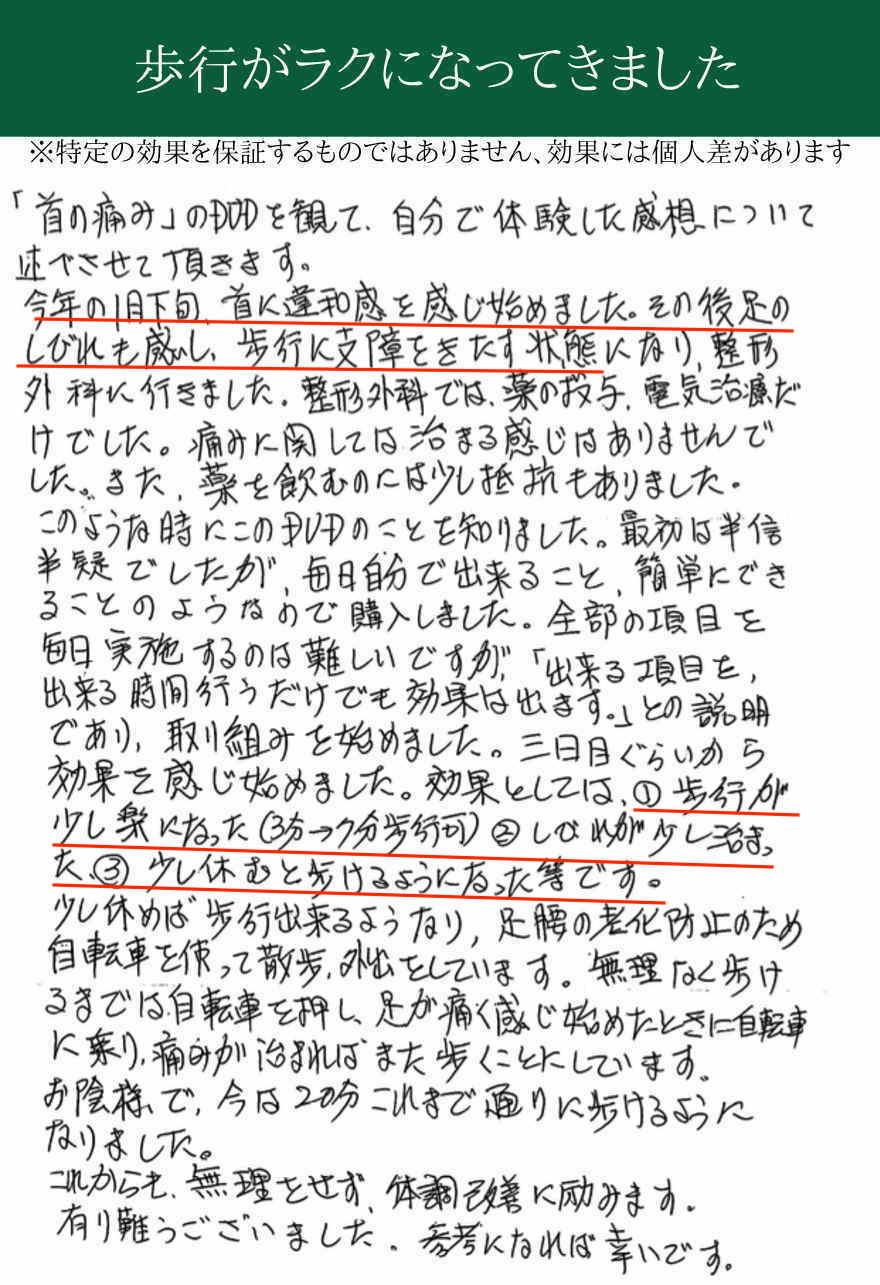 歩行がラクになってきました
※特定の効果を保証するものではありません、効果には個人差があります
「首の痛み」のDVDを観て、自分で体験した感想について
述べさせて頂きます。
今年の1月下旬、首に違和感を感じ始めました。その後足の
しびれも感じ、歩行に支障をきたす状態になり、整形
外科に行きました。整形外科では、薬の投与、電気治療だ
けでした。痛みに関しては治まる感じはありませんで
した。また、薬を飲むのには少し抵抗もありました。
このような時にこのDVDのことを知りました。最初は半信
半疑でしたが、毎日自分で出来ること、簡単にでき
ることのようなので購入しました。全部の項目を
毎日実施するのは難しいですが、「出来る項目を、
出来る時間行うだけでも効果は出ます。」との説明
であり、取り組みを始めました。三日目ぐらいから
効果を感じ始めました。効果としては、①歩行が
少し楽になった(3分→7分歩行可)②しびれが少し治まっ
た、③少し休むと歩けるようになった等です。
少し休めば歩行出来るようなり、足腰の老化防止のため
自転車を使って散歩、外出をしています。無理なく歩け
るまでは自転車を押し、足が痛く感じ始めたときに自転車
に乗り、痛みが治まればまた歩くことにしています。
お陰様で、今は20分これまで通りに歩けるように
なりました。
これからも、無理をせず、体調改善に励みます。
有り難うございました。参考になれば幸いです。